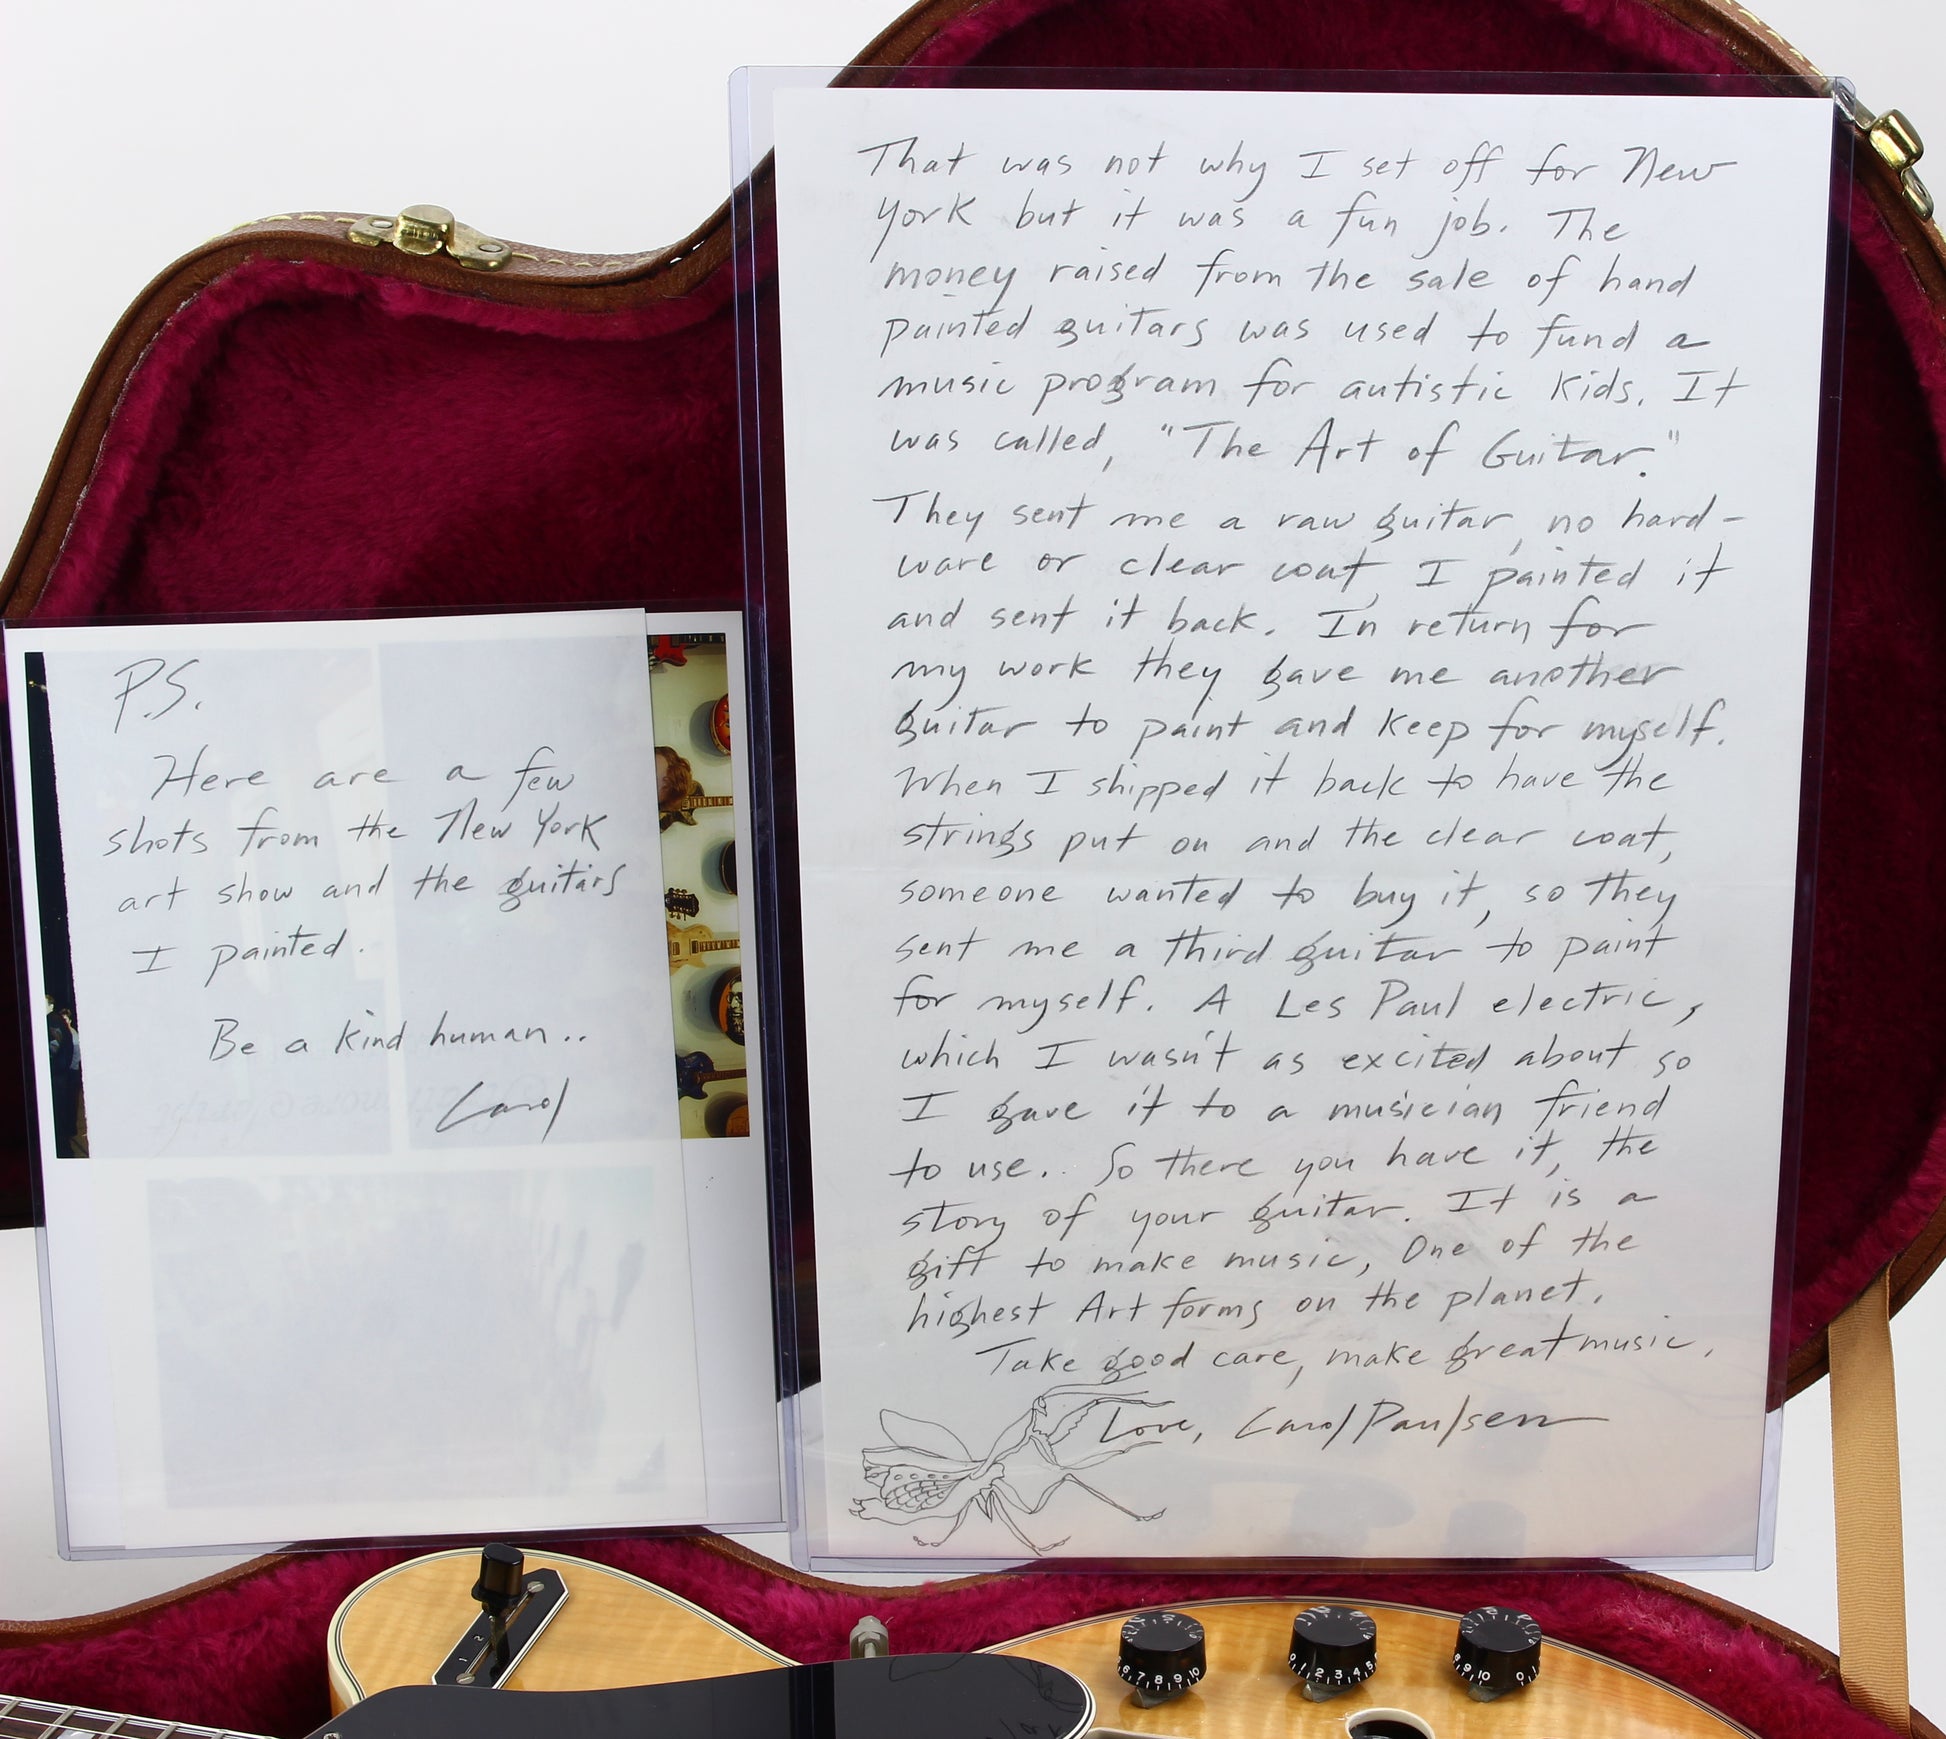 P.S.
Here are a few
shots from the New York
art show and the guitars
I painted.
Be a kind human..
Carol
That was not why I set off for New
York but it was a fun job. The
money raised from the sale of hand
painted guitars was used to fund a
music program for autistic kids. It
was called, "The Art of Guitar."
They sent me a raw guitar, no hard-
ware or clear coat, I painted it
and sent it back. In return for
my work they gave me another
guitar to paint and keep for myself.
When I shipped it back to have the
strings put on and the clear coat,
someone wanted to buy it, so they
sent me a third guitar to paint
for myself. A Les Paul electric,
which I wasn't as excited about so
I gave it to a musician friend
to use.. So there you have it, the
story of your guitar. It is a
gift to make music, One of the
highest Art forms on the planet.
Take good care, make great music.
Love, Carol Paulsen
1 2
6 7 8 9 10
0 1 2 3 4 5
8 9 10 0 1